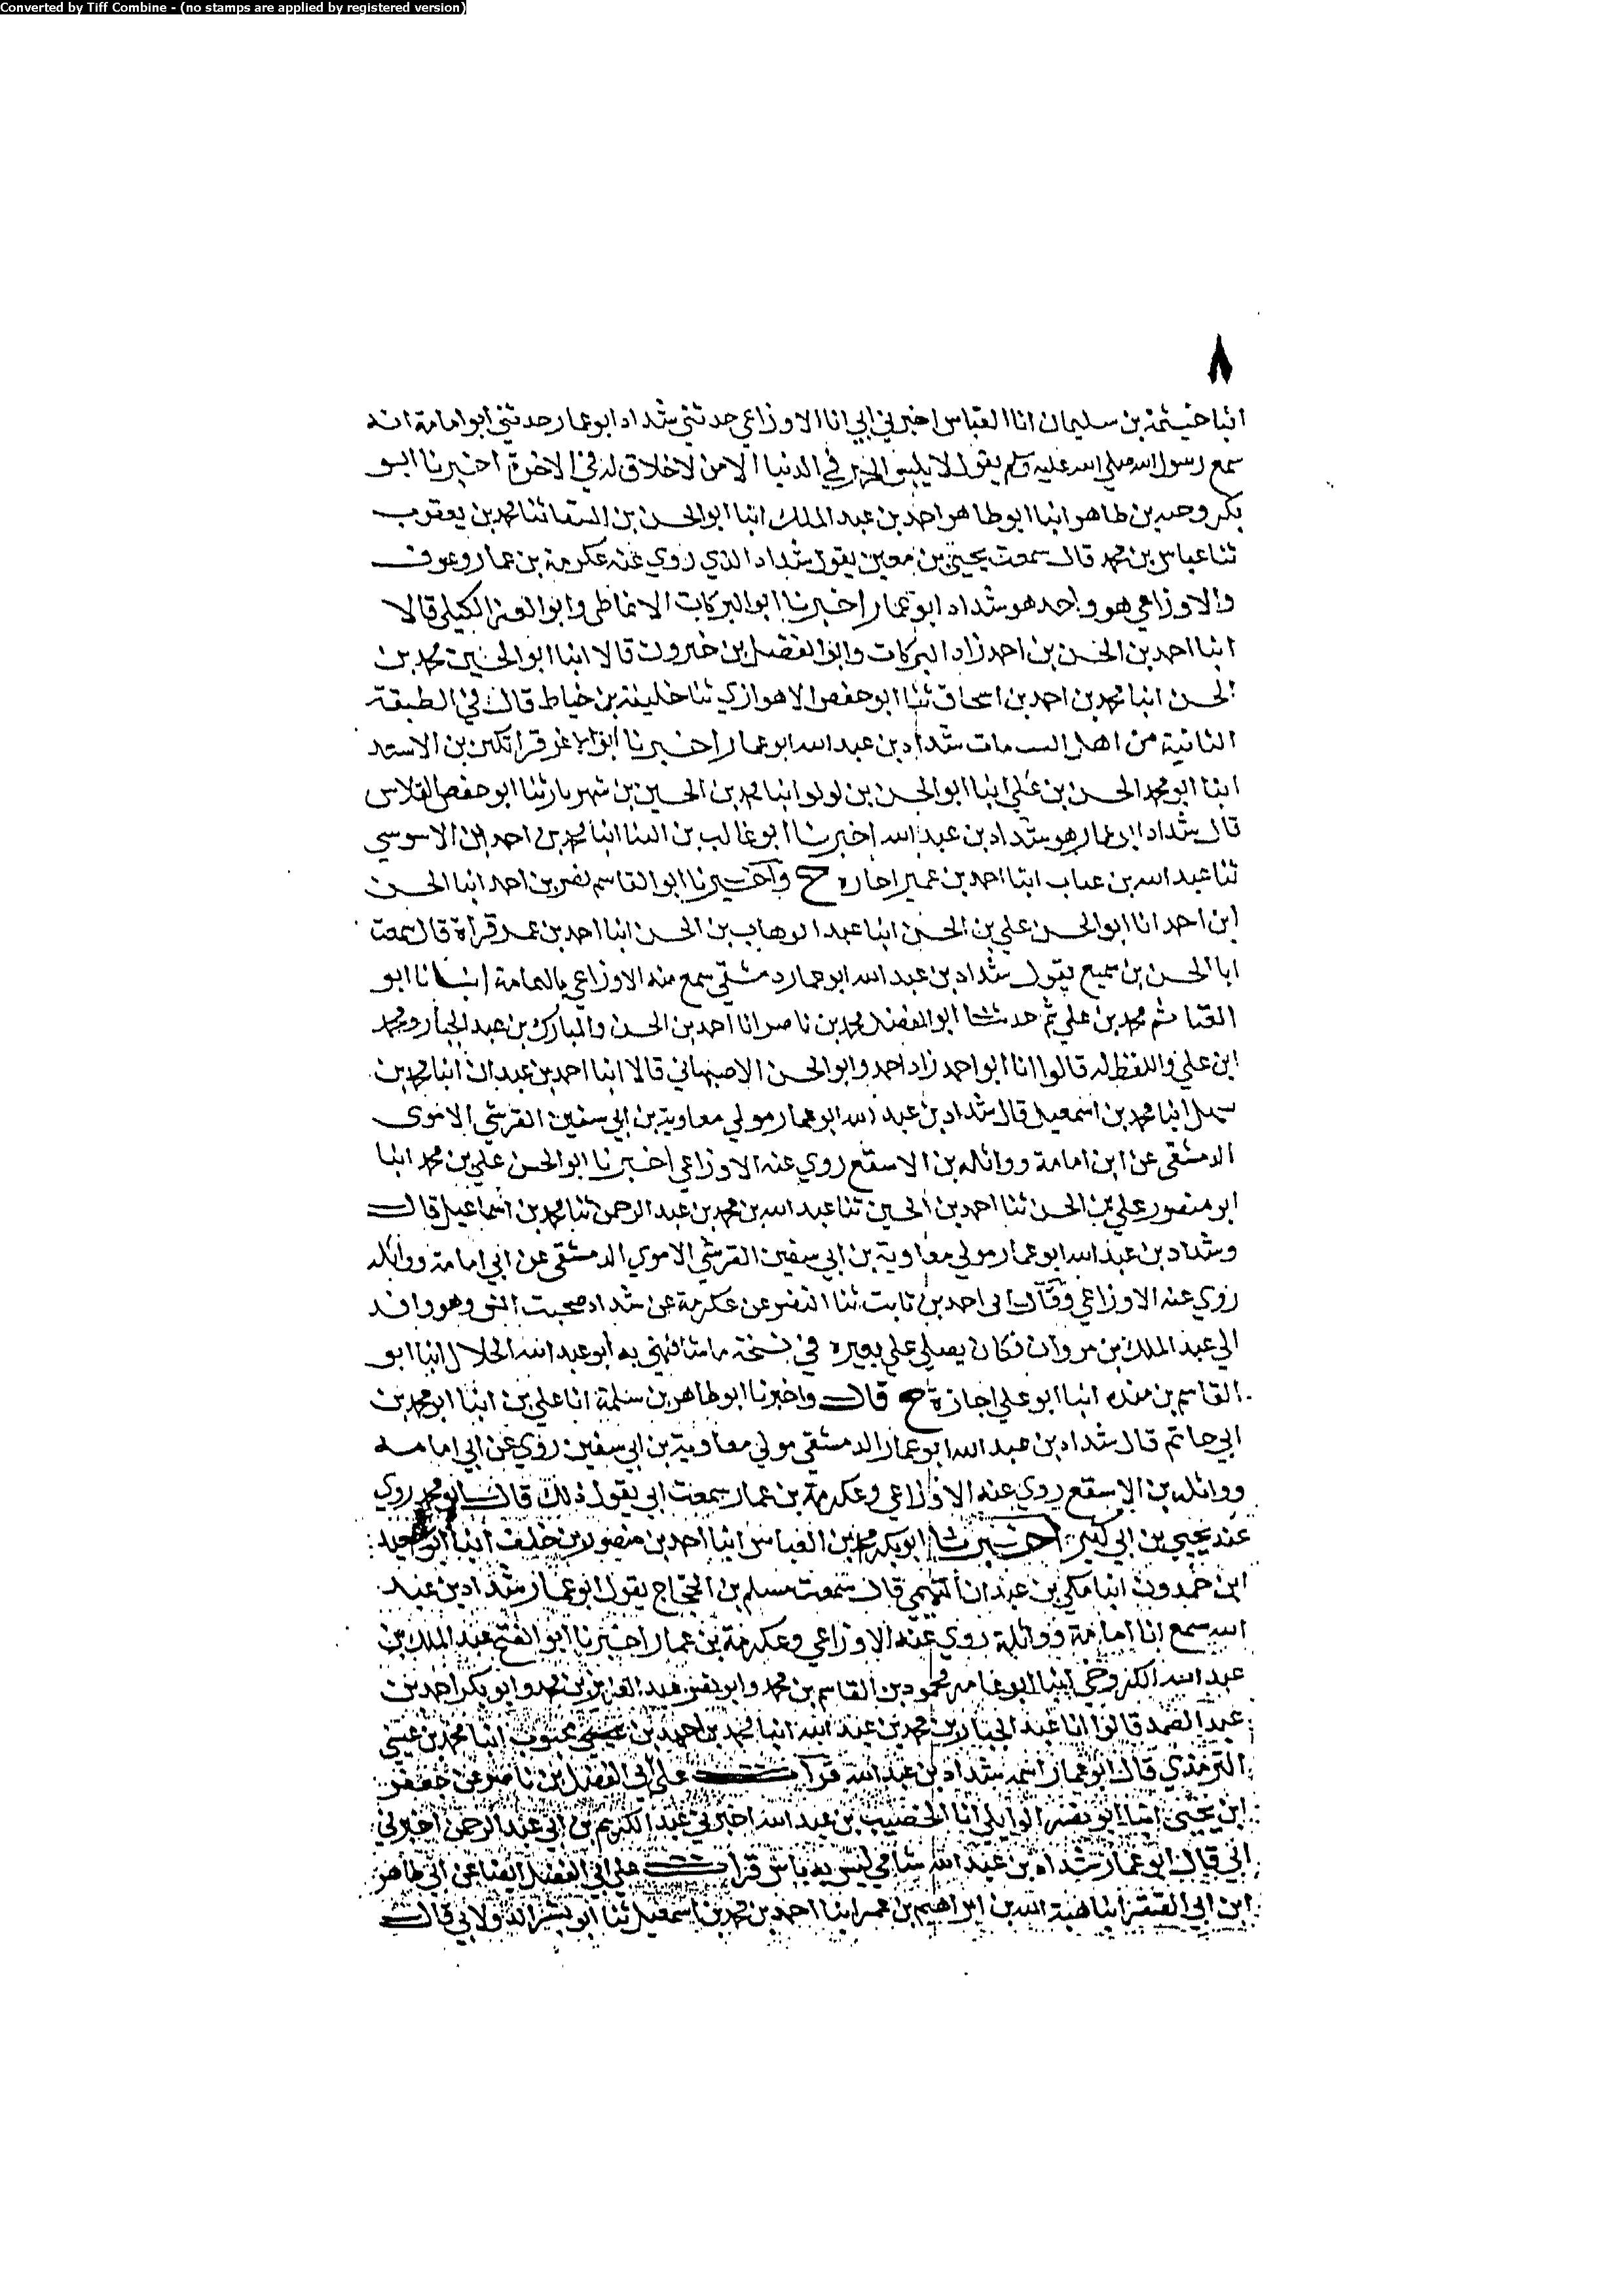 Converted by Tiff Combine - (no stamps are applied by registered version)
٨
انبا خيثمة بن سليمان انا العباس اخبرني ابي انا الاوزاعي حدثني شداد ابو عمار حدثني ابو امامة انه
سمع رسول الله صلي الله عليه وسلم يقول لا يلبس الحرير في الدنيا الا من لا خلاق له في الاخرة اخبرنا ابو
بكر وجيه بن طاهر انبا ابو طاهر احمد بن عبد الملك انبا ابو الحسن بن السقا ثنا محمد بن يعقوب
ثنا عباس بن محمد قال سمعت يحيى بن معين يقول شداد الذي روي عنه عكرمة بن عمار وعوف
والاوزاعي هو واحد هو شداد ابو عمار اخبرنا ابو البركات الانماطي وابو العز الكيلي قالا
انبا احمد بن الحسن بن احمد زاد البركات وابو الفضل بن خيرون قالا انبا ابو الحسين محمد بن
الحسن انبا محمد بن احمد بن اسحاق ثنا ابو حفص الاهوازي ثنا خليفة بن خياط قال في الطبقة
الثانية من اهل السمات شداد بن عبد الله ابو عمار اخبرنا ابو الاعز قراتكين بن الاسعد
انبا ابو محمد الحسن بن علي انبا ابو الحسن بن لولو انبا محمد بن الحسين بن شهريار ثنا ابو حفص الفلاس
قال شداد ابو عمار هو شداد بن عبد الله اخبرنا ابو غالب بن البنا انبا محمد بن احمد بن الاسوسي
ثنا عبد الله بن عتاب انبا احمد بن عمير اجازه ح واخبرنا ابو القاسم نصر بن احمد انبا الحسن
ابن احمد انا ابو الحسن علي بن الحسن انبا عبد الوهاب بن الحسن انبا احمد بن عمير قراة قال سمعت
ابا الحسن بن سميع يقول شداد بن عبد الله ابو عمار دمشقي سمع منه الاوزاعي باليمامة انبانا ابو
الغنائم محمد بن علي ثم حدثنا ابو الفضل محمد بن ناصر انا احمد بن الحسن والمبارك بن عبد الجبار ومحمد
ابن علي واللفظ له قالوا انا ابو احمد زاد احمد وابو الحسن الاصبهاني قالا انبا احمد بن عبدان انبا محمد بن
سهل انبا محمد بن اسمعيل قال شداد بن عبد الله ابو عمار مولي معاوية بن ابي سفين القرشي الاموي
الدمشقي عن ابن امامة وواثلة بن الاسقع روي عنه الاوزاعي اخبرنا ابو الحسن علي بن محمد انبا
ابو منصور علي بن الحسن ثنا احمد بن الحسين ثنا عبد الله بن محمد بن عبد الرحمن ثنا محمد بن اسماعيل قال
وشداد بن عبد الله ابو عمار مولي معاوية بن ابي سفين القرشي الاموي الدمشقي عن ابي امامة وواثلة
روي عنه الاوزاعي وقال لي احمد بن ثابت ثنا النضر عن عكرمة عن شداد صحبت انس وهو وافد
الي عبد الملك بن مروان فكان يصلي علي بعيره في نسخة ما شافهني به ابو عبد الله الخلال انبا ابو
القاسم بن منده انبا ابو علي اجازة ح قال واخبرنا ابو طاهر بن سلمة انا علي بن انبا ابو محمد بن
ابي حاتم قال شداد بن عبد الله ابو عمار الدمشقي مولي معاوية بن ابي سفين روي عن ابي امامه
وواثلة بن الاسقع روي عنه الاوزاعي وعكرمة بن عمار سمعت ابي يقول ذلك قال ابو محمد روي
عنه يحيي بن ابي كثير اخبرنا ابو بكر محمد بن العباس انبا احمد بن منصور بن خلف انبا ابو سعيد
ابن حمدون انبا مكي بن عبدان التميمي قال سمعت مسلم بن الحجاج يقول ابو عمار شداد بن عبد
الله سمع ابا امامة وواثلة روي عنه الاوزاعي وعكرمة بن عمار اخبرنا ابو الفتح عبد الملك بن
عبد الله الكروخي انبا ابو عامر محمود بن القاسم بن محمد وابو نصر عبد العزيز بن محمد وابو بكر احمد بن
عبد الصمد قالوا انا عبد الجبار بن محمد بن عبد الله انبا محمد بن احمد بن محبوب انبا محمد بن عيسي
الترمذي قال ابو عمار اسمه شداد بن عبد الله قرات علي ابي الفضل بن ناصر عن جعفر
ابن يحيي انبا ابو نصر الوايلي انا الخصيب بن عبد الله اخبرني عبد الكريم بن ابي عبد الرحمن اخبرني
ابي قال ابو عمار شداد بن عبد الله شامي ليس به باس قرات علي ابي الفضل ايضا عن ابي طاهر
ابن ابي الصقر انبا هبة الله بن ابراهيم بن عمر انبا احمد بن محمد بن اسمعيل ثنا ابو بشر الدولابي قال